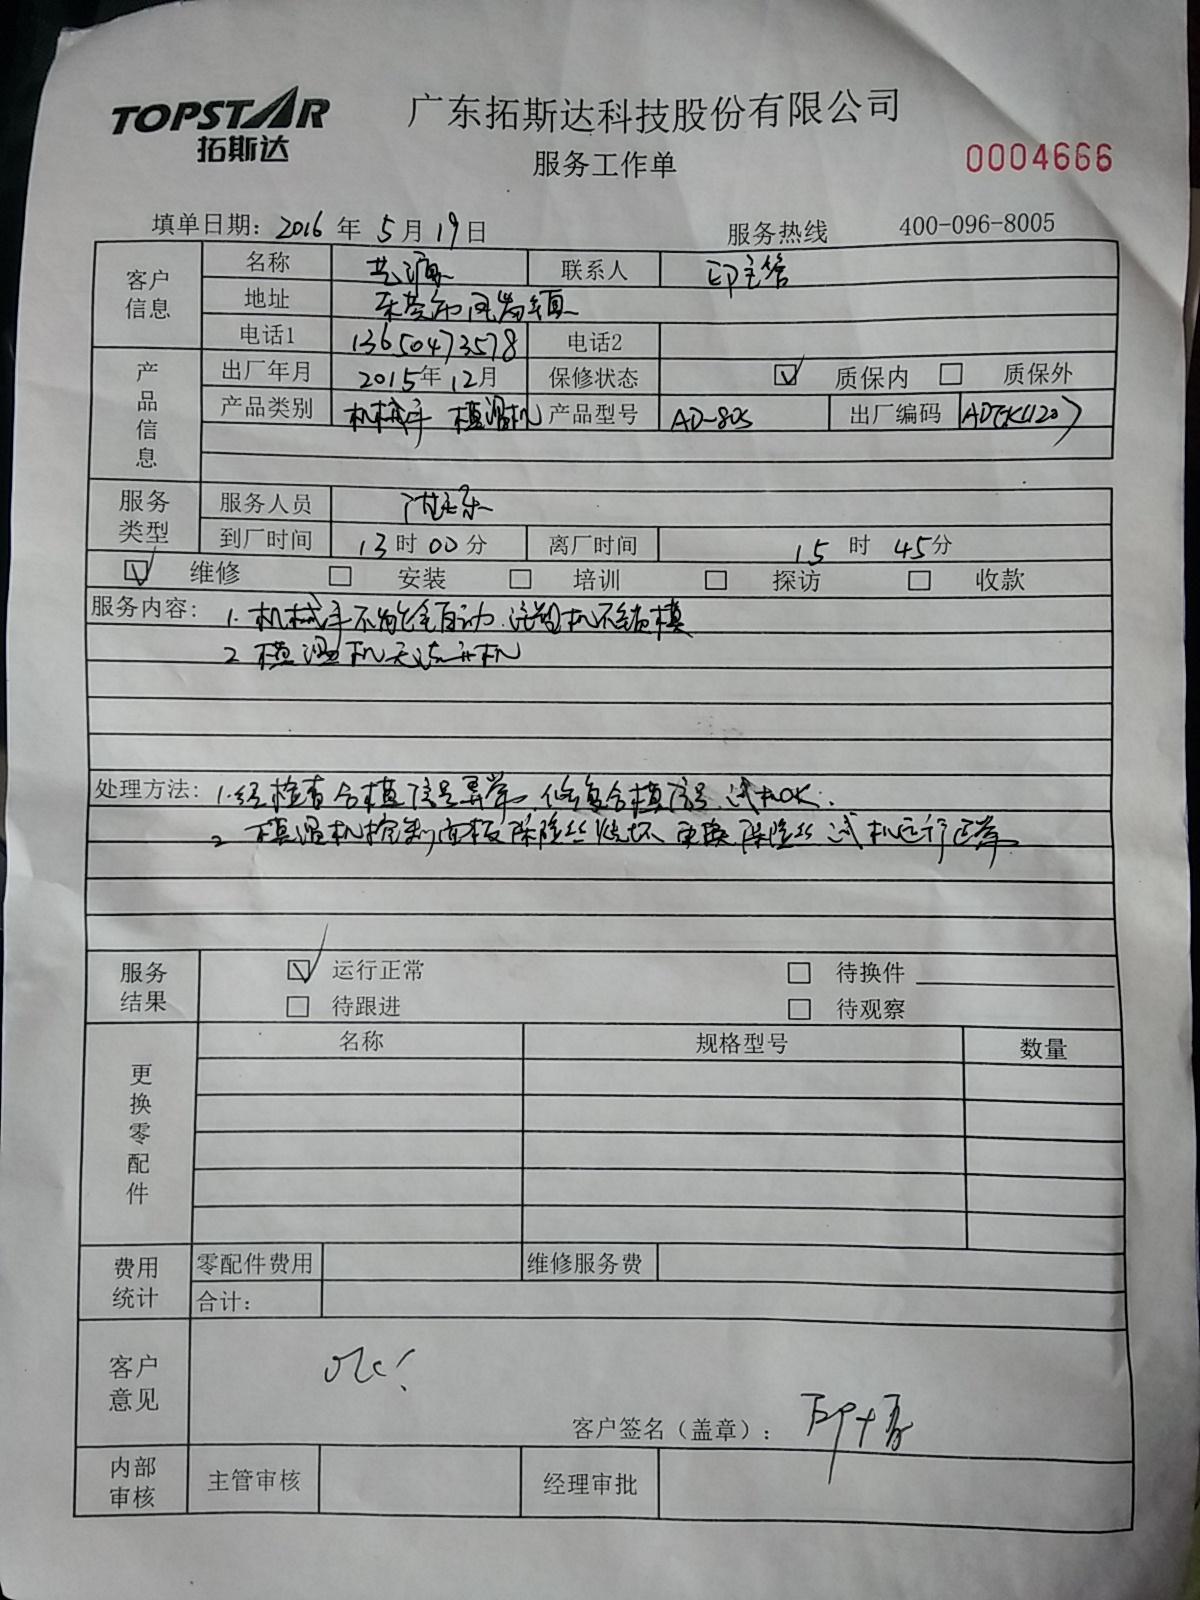 TOPSTAR
拓斯达
广东拓斯达科技股份有限公司
服务工作单
0004666
填单日期: 2016 年 5 月 19 日 服务热线 400-096-8005
客户信息
名称 联系人 印主管
地址 东莞市凤岗镇
电话1 13650473578 电话2
产品信息
出厂年月 2015年12月 保修状态 质保内 质保外
产品类别 机械手 模温机 产品型号 AD-805 出厂编码
服务类型
服务人员
到厂时间 13 时 00 分 离厂时间 15 时 45分
维修 安装 培训 探访 收款
服务内容: 1. 机械手不能全自动.注塑机不锁模
2 模温机无法开机
处理方法: 1.经检查合模信号异常,修复合模信号.试机OK.
2 模温机控制面板保险丝烧坏 更换保险丝 试机运行正常
服务结果
运行正常 待换件
待跟进 待观察
更换零配件
名称 规格型号 数量
费用统计
零配件费用 维修服务费
合计:
客户意见
OK!
客户签名（盖章）:
内部审核
主管审核 经理审批